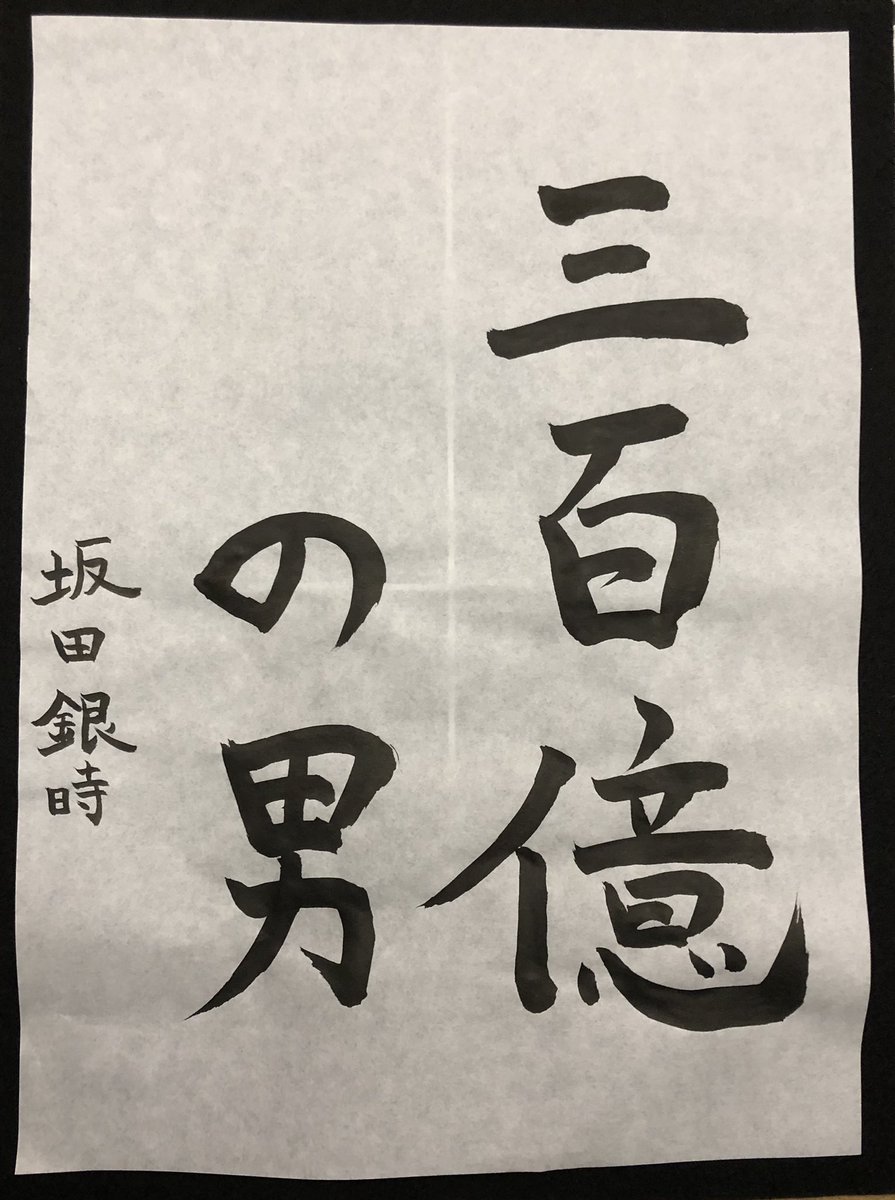 三百億
の男
坂田銀時